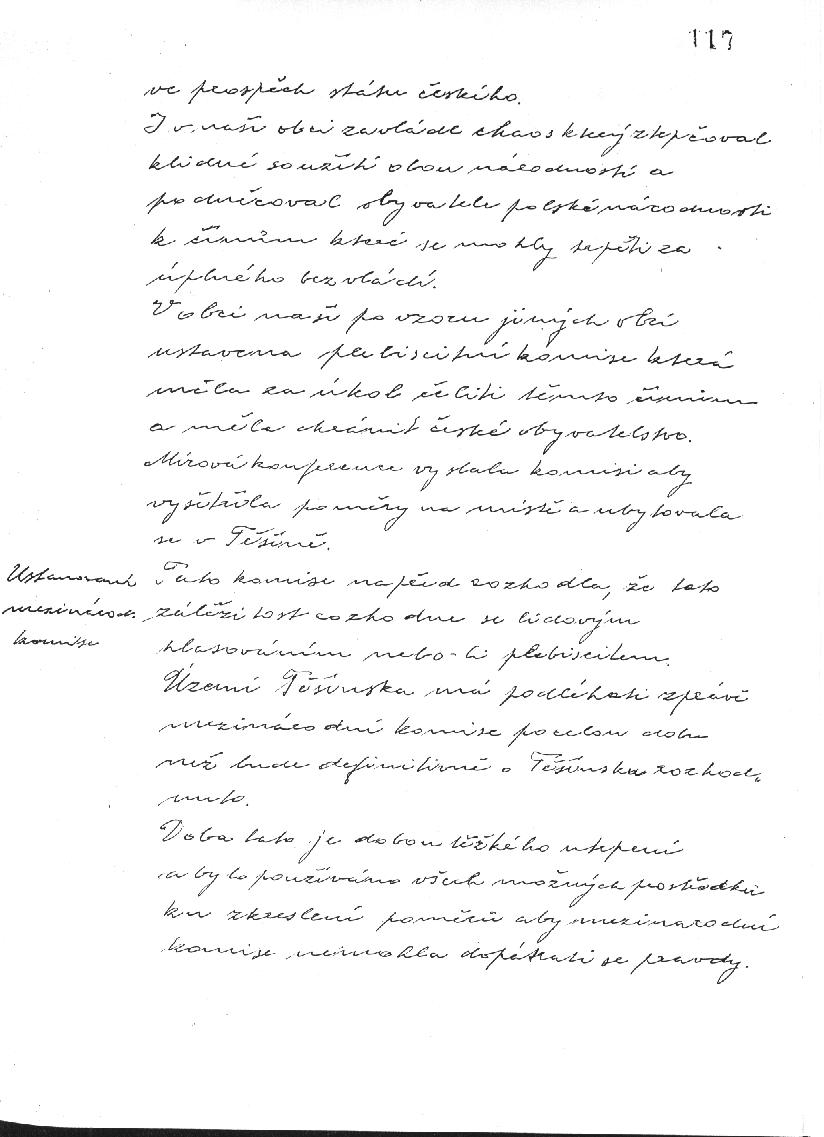 117
ve prospěch státu českého.
I v naší obci zavládl chaos který ztěpčoval
klidné soužití obou národností a
podněcoval obyvatele polské národnosti
k činům které se mohly trpěti za
úplného bezvládí.
V obci naší po vzoru jiných obcí
ustavena plebiscitní komise která
měla za úkol čeliti těmto činům
a měla chránit české obyvatelstvo.
Mírová konference vyslala komisi aby
vyšetřila poměry na místě a ubytovala
se v Těšíně.
Ustanovení
mezinárod.
komise
Tato komise napřed rozhodla, že tato
záležitost rozhodne se lidovým
hlasováním nebo-li plebiscitem.
Území Těšínska má podléhati zprávě
mezinárodní komise po celou dobu
než bude definitivně o Těšínsku rozhod„
nuto.
Doba tato je dobou těžkého utrpení
a bylo používáno všech možných prostředků
ku zkreslení poměrů aby mezinarodní
komise nemohla dopátrati se pravdy.